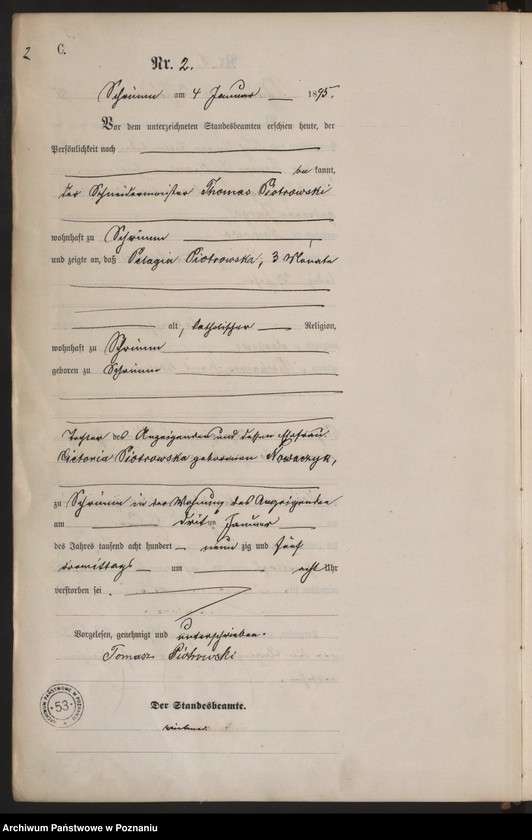 2
C.
Nr. 2.
Schrimm am 4 Januar 1895.
Vor dem unterzeichneten Standesbeamten erschien heute, der
Persönlichkeit nach
be kannt,
der Schneidermeister Thomas Piotrowski
wohnhaft zu Schrimm
und zeigte an, daß Pelagia Piotrowska, 3 Monate
alt, katholischer Religion,
wohnhaft zu Schrimm
geboren zu Schrimm
Tochter des Anzeigenden und dessen Ehefrau
Victoria Piotrowska geborenen Nowaczyk,
zu Schrimm in der Wohnung des Anzeigenden
am dritten Januar
des Jahres tausend acht hundert neun zig und fünf
vormittags um acht Uhr
verstorben sei.
Vorgelesen, genehmigt und unterschrieben.
Tomasz Piotrowski
Der Standesbeamte.
ARCHIWUM PAŃSTWOWE W POZNANIU
53
Archiwum Państwowe w Poznaniu